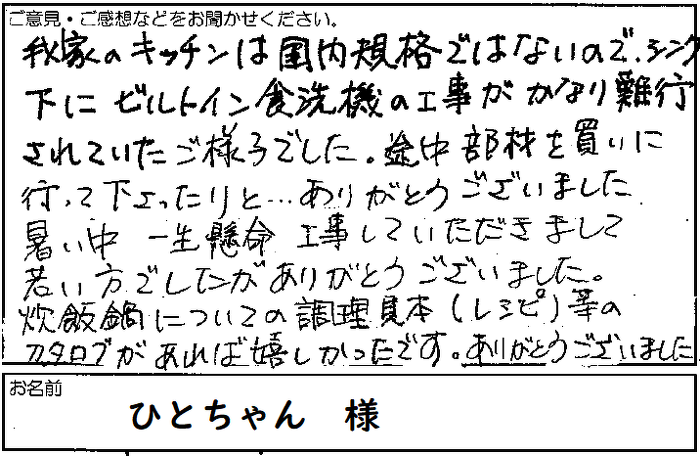 ご意見・ご感想などをお聞かせください。
我家のキッチンは国内規格ではないので、シンク
下にビルトイン食洗機の工事がかなり難行
されていたご様子でした。途中部材を買いに
行って下さったりと…ありがとうございました
暑い中 一生懸命 工事していただきまして
若い方でしたがありがとうございました。
炊飯鍋についての調理見本(レシピ)等の
カタログがあれば嬉しかったです。ありがとうございました
お名前
ひとちゃん 様